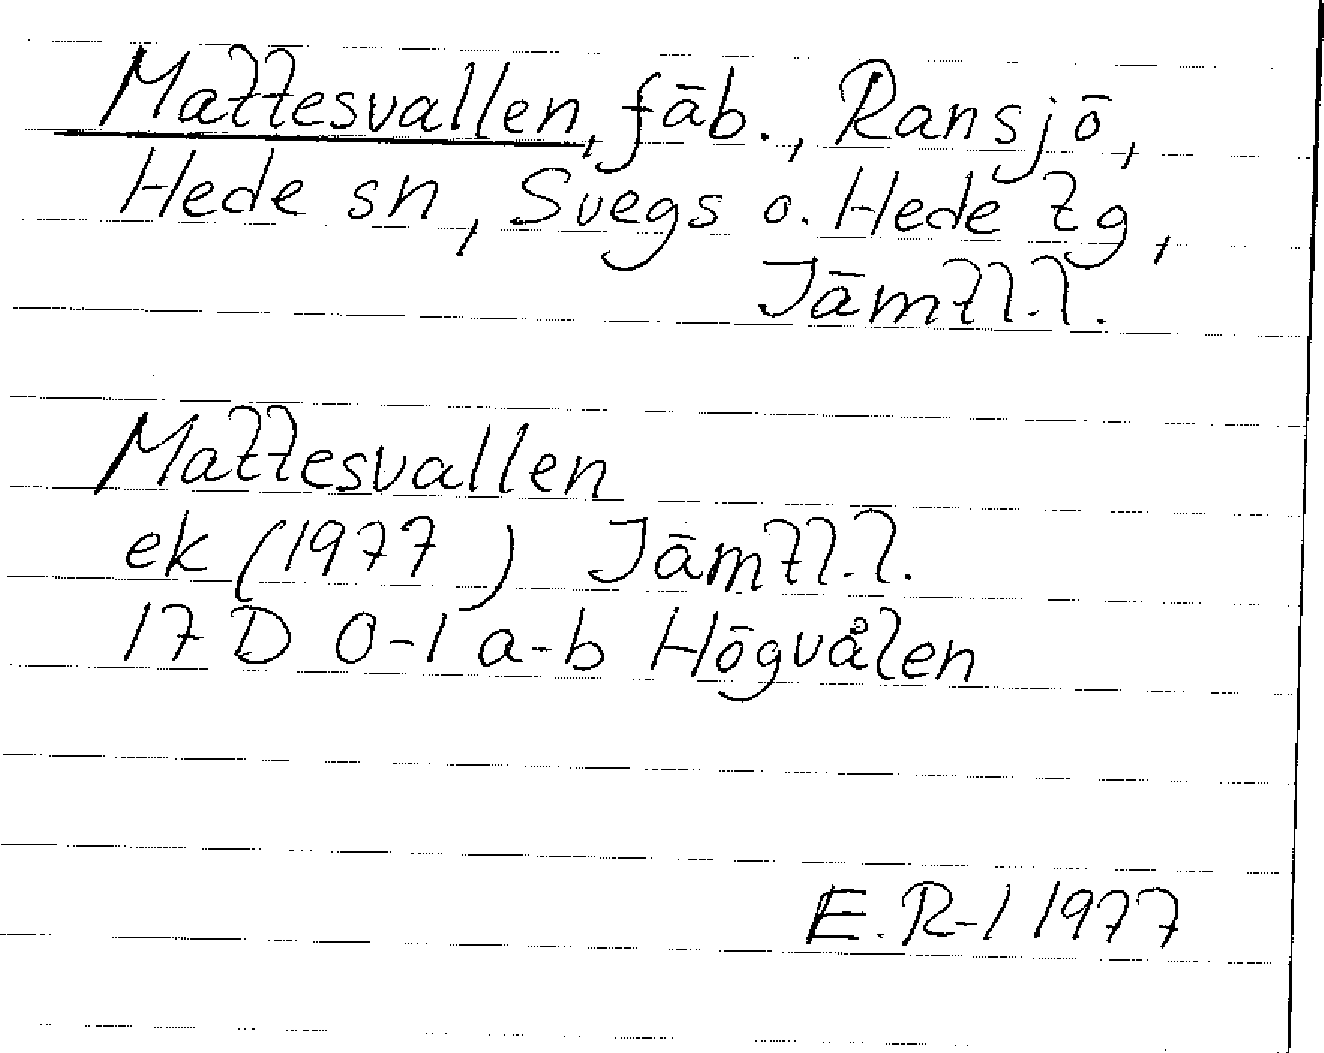 Mattesvallen, fäb., Ransjö,
Hede sn, Svegs o. Hede tg,
Jämtl.l.
Mattesvallen
ek (1977) Jämtl.l.
17 D 0-1 a-b Högvålen
E.R-l 1977